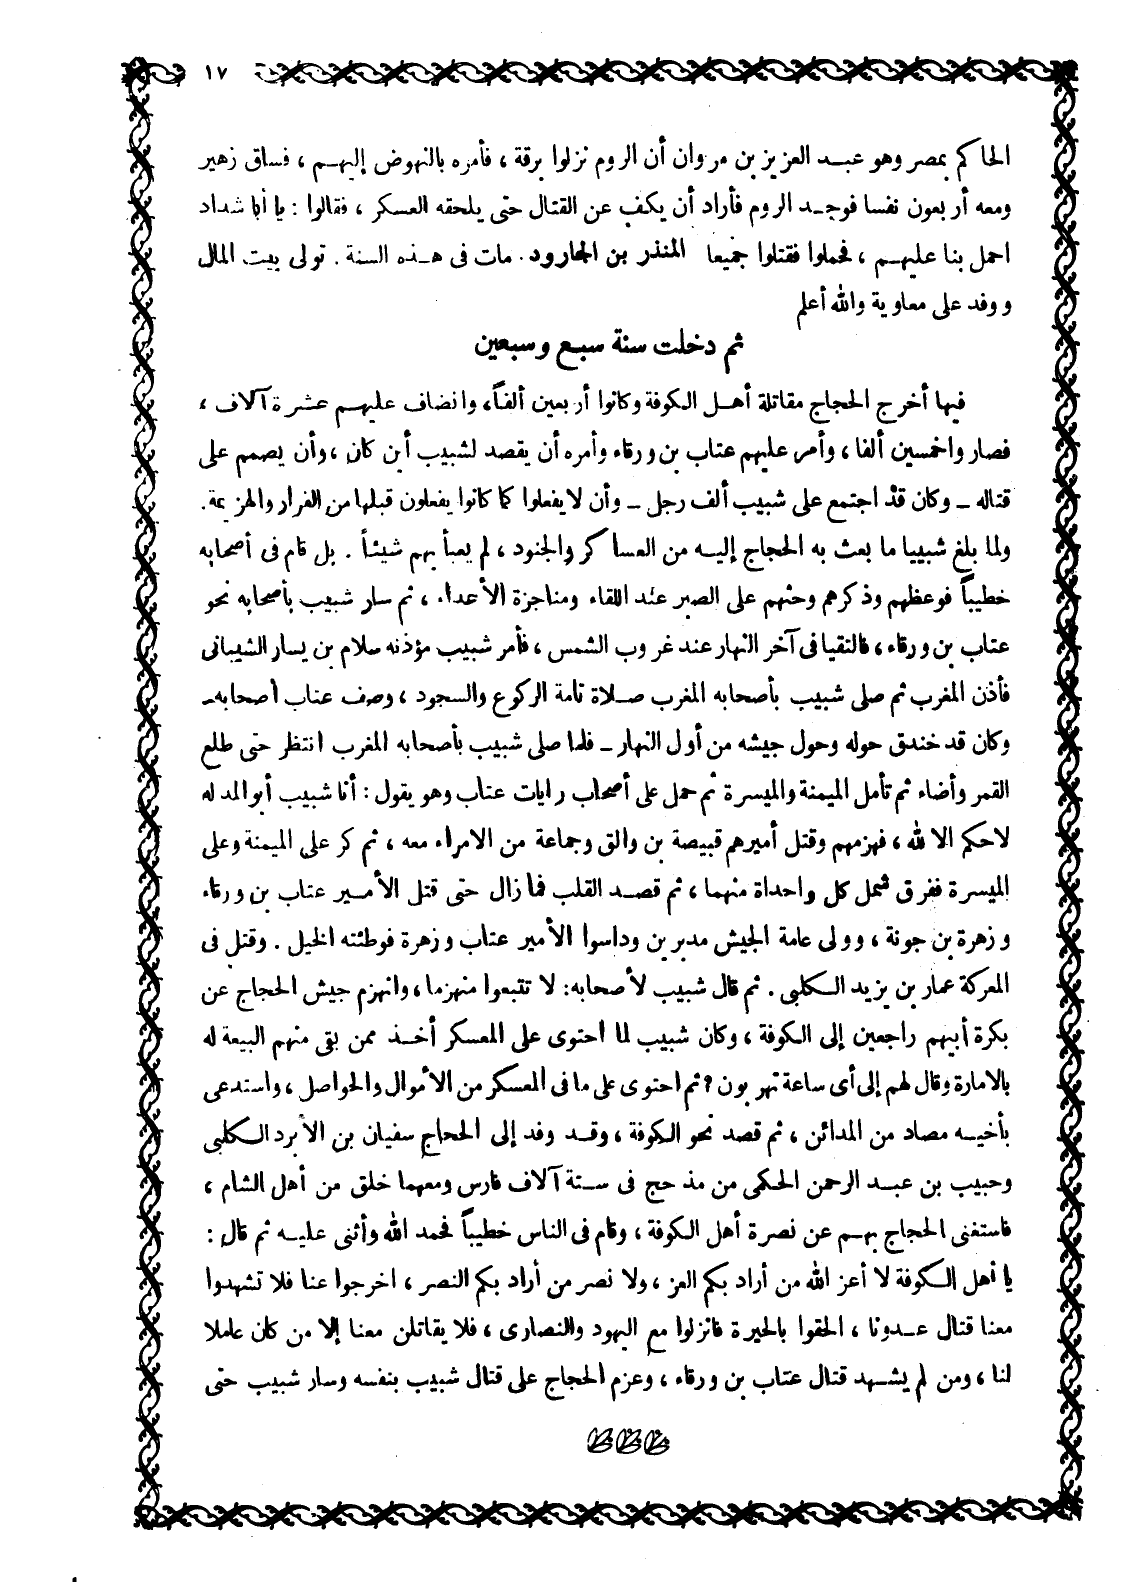 ١٧
الحاكم بمصر وهو عبد العزيز بن مروان أن الروم نزلوا برقة ، فأمره بالنهوض إليهم ، فساق زهير
ومعه أربعون نفسا فوجد الروم فأراد أن يكف عن القتال حتى يلحقه العسكر ، فقالوا : يا أبا شداد
احمل بنا عليهم ، فحملوا فقتلوا جميعا المنذر بن الجارود . مات فى هذه السنة . تولى بيت المال
ووفد على معاوية والله أعلم
ثم دخلت سنة سبع وسبعين
فيها أخرج الحجاج مقاتلة أهل الكوفة وكانوا أربعين ألفاً ، وانضاف عليهم عشرة آلاف ،
فصاروا خمسين ألفا ، وأمر عليهم عتاب بن ورقاء وأمره أن يقصد لشبيب أين كان ، وأن يصمم على
قتاله ــ وكان قد اجتمع على شبيب ألف رجل ــ وأن لا يفعلوا كما كانوا يفعلون قبلها من الفرار والهزيمة .
ولما بلغ شبيبا ما بعث به الحجاج إليه من العساكر والجنود ، لم يعبأ بهم شيئاً . بل قام فى أصحابه
خطيباً فوعظهم وذكرهم وحثهم على الصبر عند اللقاء ومناجزة الأعداء ، ثم سار شبيب بأصحابه نحو
عتاب بن ورقاء ، فالتقيا فى آخر النهار عند غروب الشمس ، فأمر شبيب مؤذنه سلام بن يسار الشيبانى
فأذن المغرب ثم صلى شبيب بأصحابه المغرب صلاة تامة الركوع والسجود ، وصف عتاب أصحابه ــ
وكان قد خندق حوله وحول جيشه من أول النهار ــ فلما صلى شبيب بأصحابه المغرب انتظر حتى طلع
القمر وأضاء ثم تأمل الميمنة والميسرة ثم حمل على أصحاب رايات عتاب وهو يقول : أنا شبيب أبو المدله
لا حكم الا لله ، فهزمهم وقتل أميرهم قبيصة بن والق وجماعة من الامراء معه ، ثم كر على الميمنة وعلى
الميسرة ففرق شمل كل واحداة منهما ، ثم قصد القلب فما زال حتى قتل الأمير عتاب بن ورقاء
وزهرة بن جونة ، وولى عامة الجيش مدبرين وداسوا الأمير عتاب وزهرة فوطئته الخيل . وقتل فى
المعركة عمار بن يزيد الكلبى . ثم قال شبيب لأصحابه : لا تتبعوا منهزما ، وانهزم جيش الحجاج عن
بكرة أبيهم راجعين إلى الكوفة ، وكان شبيب لما احتوى على المعسكر أخذ ممن بقى منهم البيعة له
بالامارة وقال لهم إلى أى ساعة تهربون ؟ ثم احتوى على ما فى المعسكر من الأموال والحواصل ، واستدعى
بأخيه مصاد من المدائن ، ثم قصد نحو الكوفة ، وقد وفد إلى الحجاج سفيان بن الأبرد الكلبى
وحبيب بن عبد الرحمن الحكمى من مذحج فى ستة آلاف فارس ومعهما خلق من أهل الشام ،
فاستغنى الحجاج بهم عن نصرة أهل الكوفة ، وقام فى الناس خطيباً فحمد الله وأثنى عليه ثم قال :
يا أهل الكوفة لا أعز الله من أراد بكم العز ، ولا نصر من أراد بكم النصر ، اخرجوا عنا فلا تشهدوا
معنا قتال عدونا ، الحقوا بالحيرة فانزلوا مع اليهود والنصارى ، فلا يقاتلن معنا إلا من كان عاملا
لنا ، ومن لم يشهد قتال عتاب بن ورقاء ، وعزم الحجاج على قتال شبيب بنفسه وسار شبيب حتى